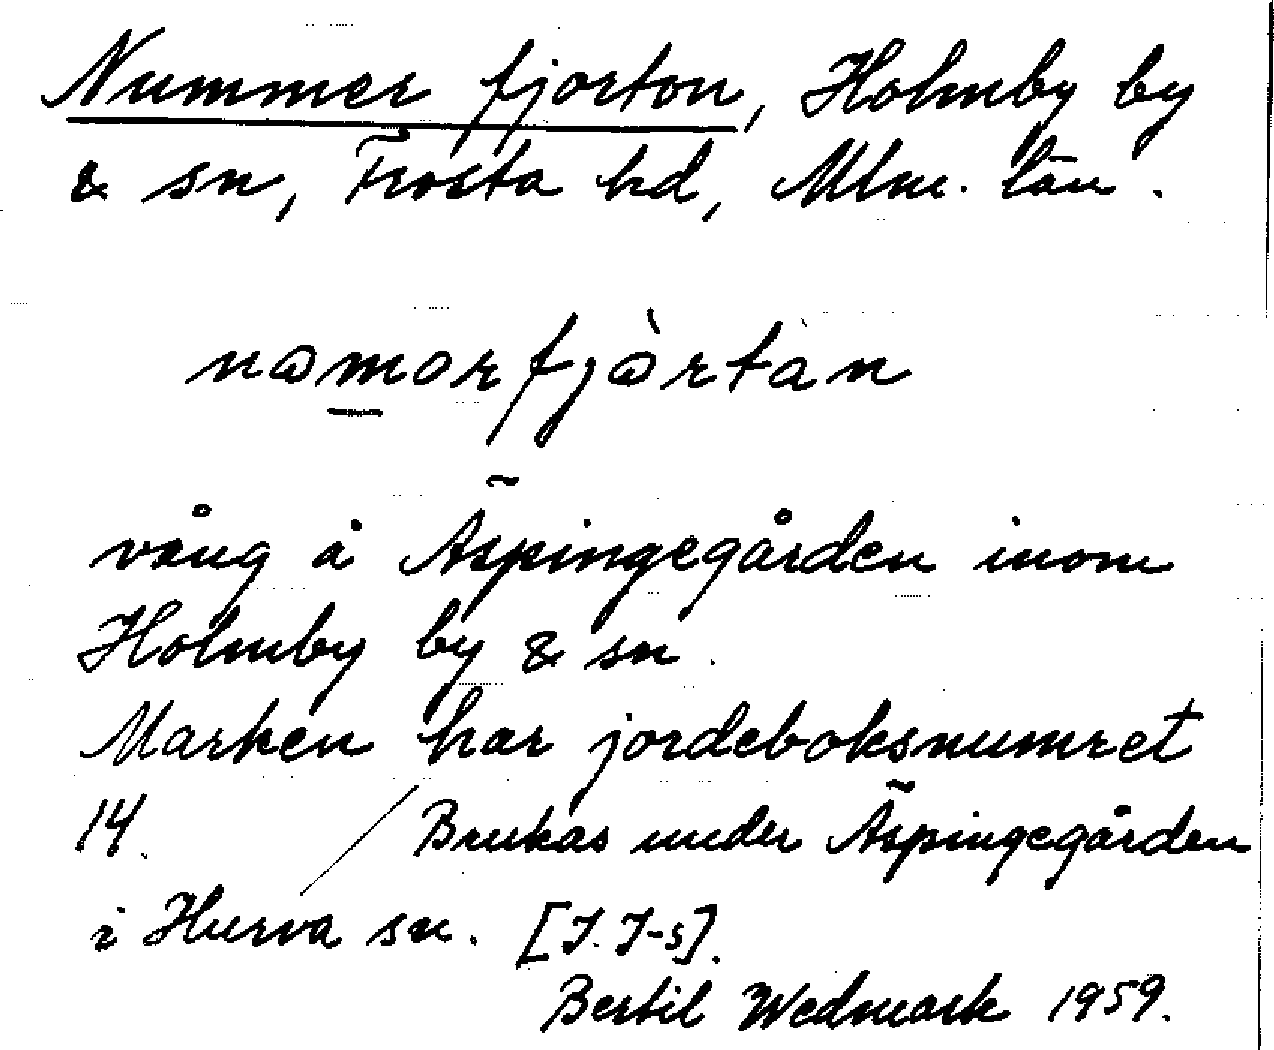 Nummer fjorton, Holmby by
& sn, Frosta hd, Mlm. län.
nɷmorfjɷ̀rtàn
vång å Äspingegården inom
Holmby by & sn.
Marken har jordeboksnumret
14. / Brukas under Äspingegården
i Hurva sn. [J. J-s].
Bertil Wedmark 1959.